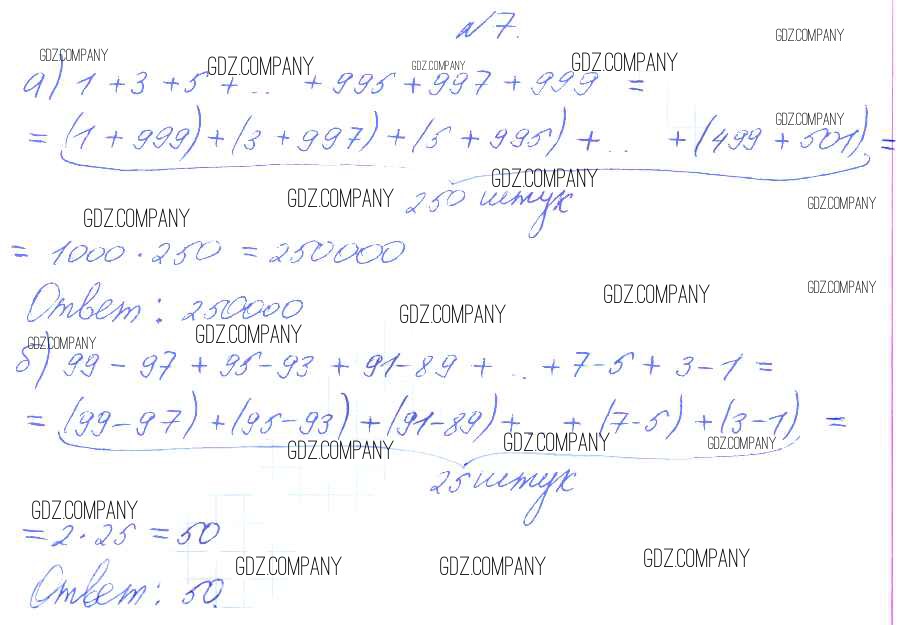 №7.
GDZ.COMPANY
GDZ.COMPANY GDZ.COMPANY GDZ.COMPANY GDZ.COMPANY
а) 1 + 3 + 5 + .. + 995 + 997 + 999 =
GDZ.COMPANY
= (1 + 999) + (3 + 997) + (5 + 995) + .. + (499 + 501) =
GDZ.COMPANY
250 штук
GDZ.COMPANY GDZ.COMPANY GDZ.COMPANY
= 1000 · 250 = 250000
GDZ.COMPANY GDZ.COMPANY
Ответ: 250000
GDZ.COMPANY GDZ.COMPANY GDZ.COMPANY
б) 99 - 97 + 95 - 93 + 91 - 89 + .. + 7 - 5 + 3 - 1 =
= (99 - 97) + (95 - 93) + (91 - 89) + .. + (7 - 5) + (3 - 1) =
GDZ.COMPANY GDZ.COMPANY GDZ.COMPANY
25 штук
GDZ.COMPANY
= 2 · 25 = 50
GDZ.COMPANY GDZ.COMPANY GDZ.COMPANY
Ответ: 50.